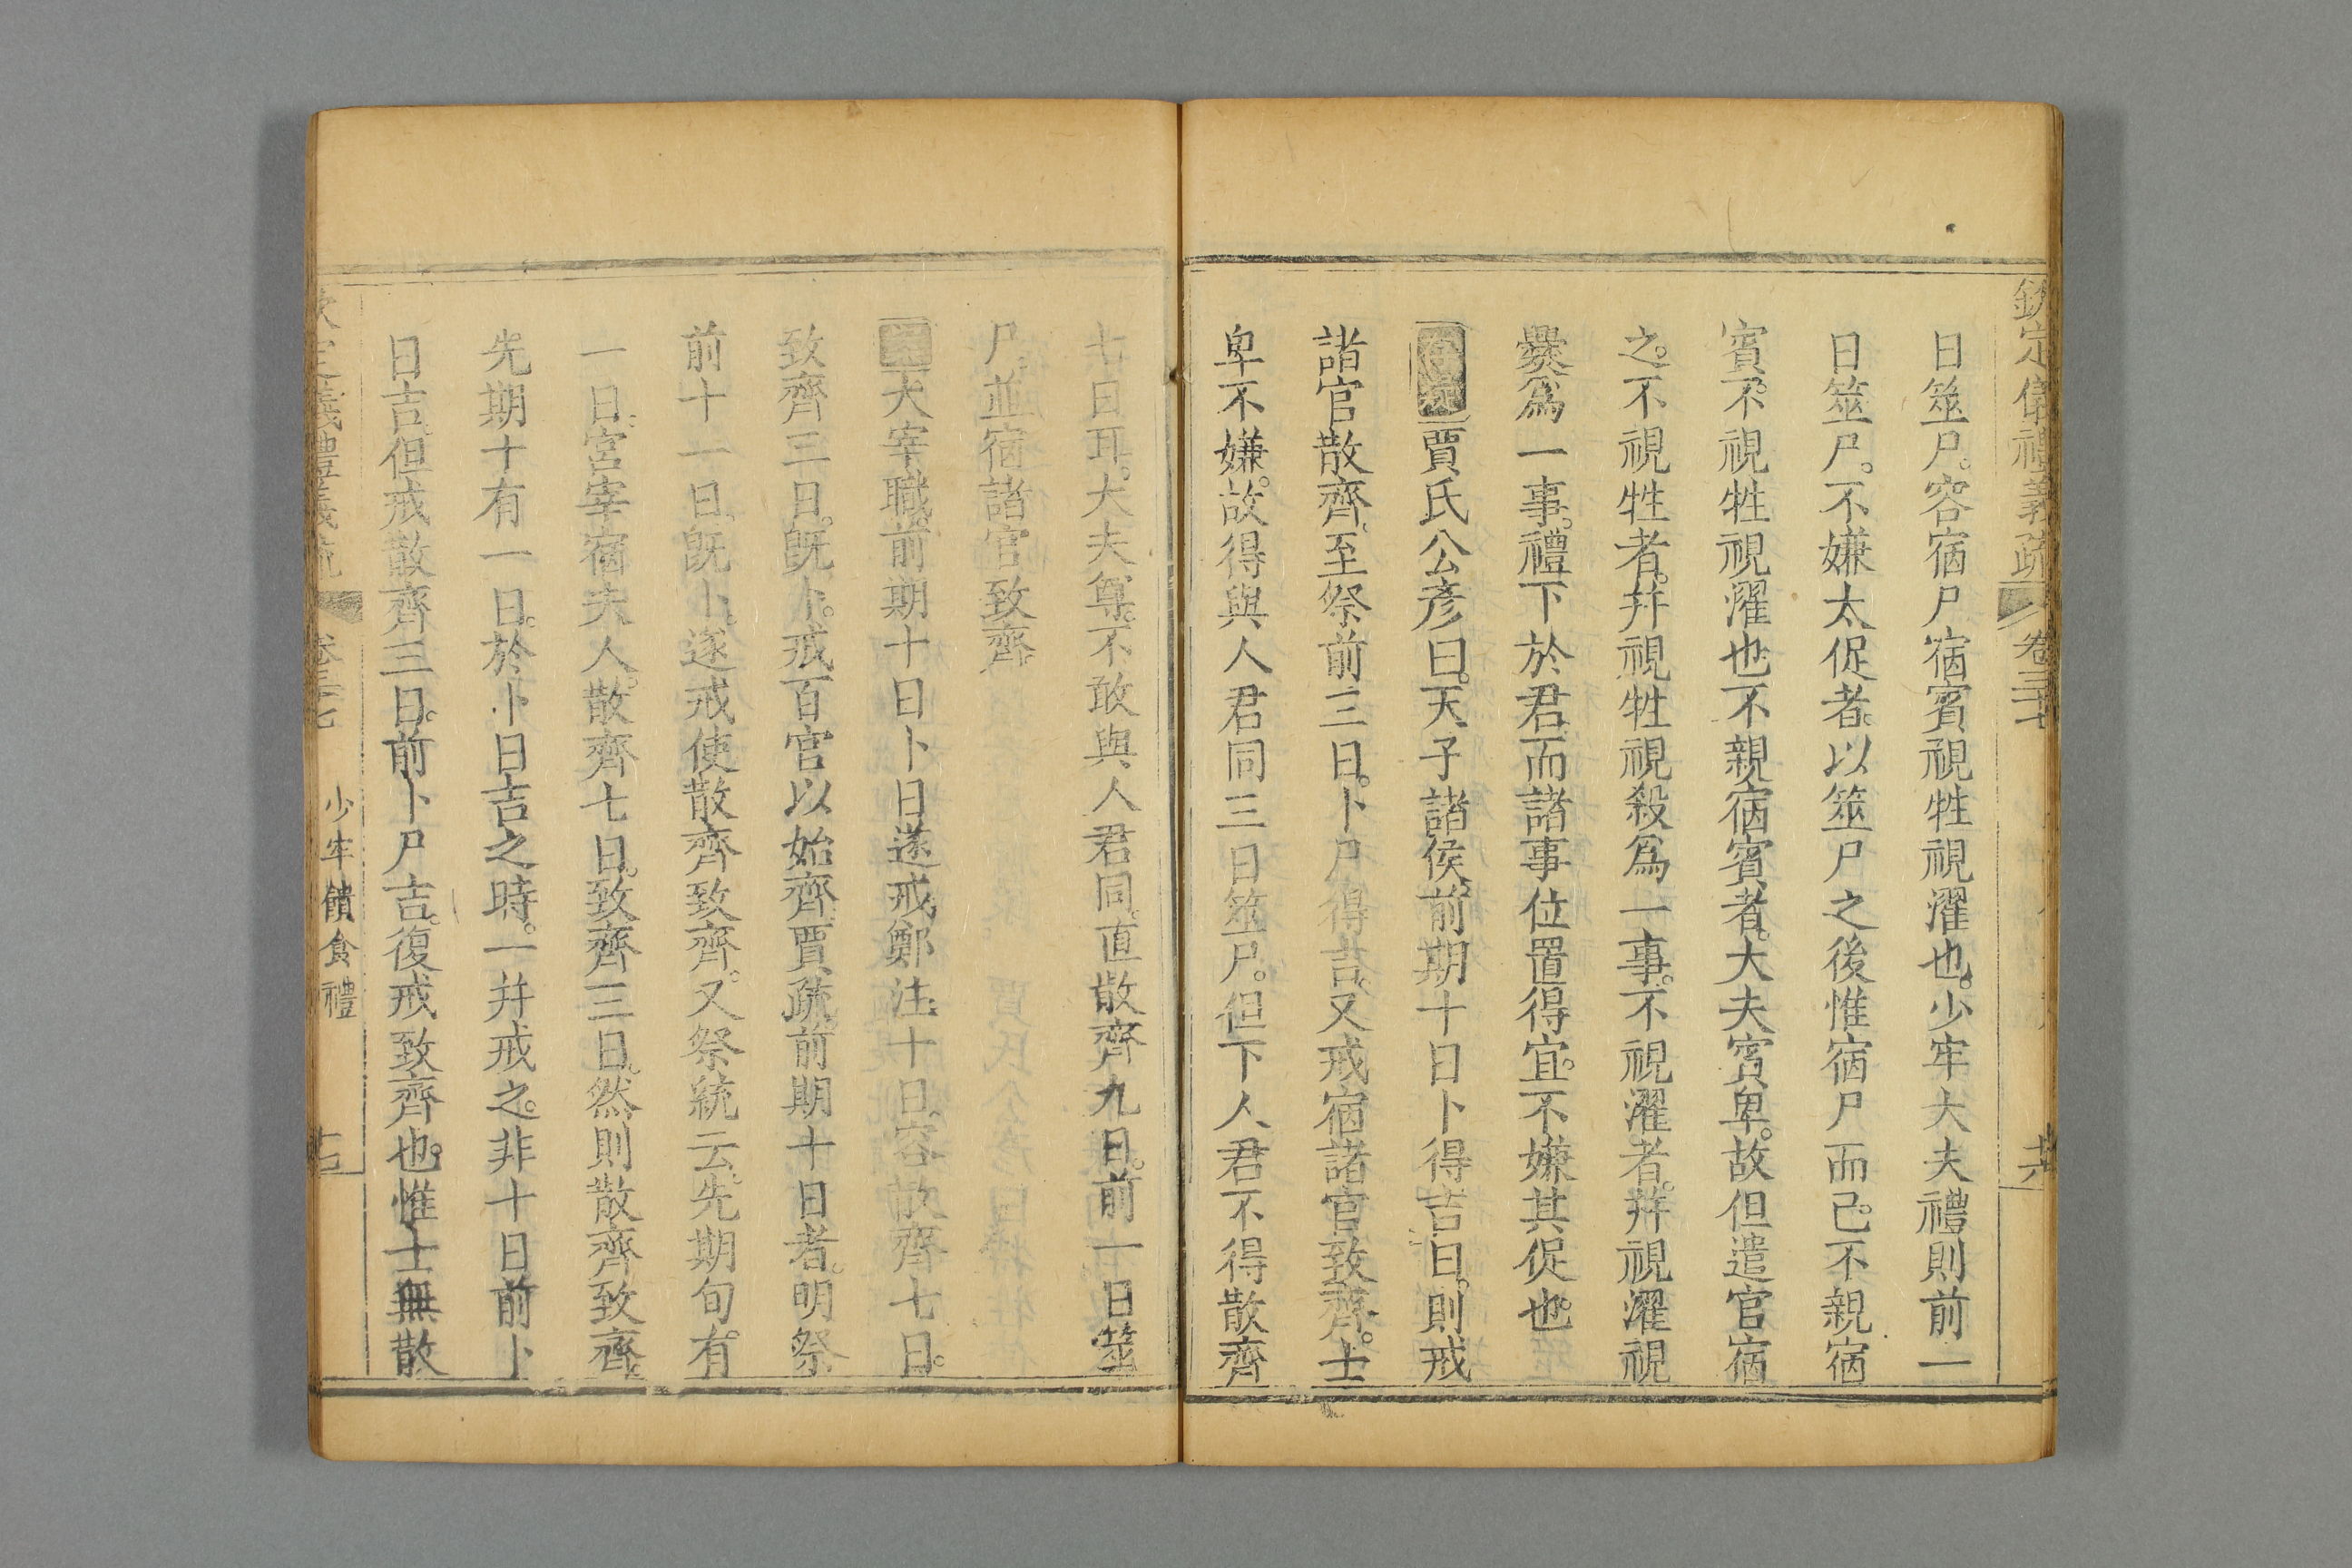 欽定儀禮義疏 卷三十七 十六
日筮尸。容宿尸宿賓視牲視濯也。少牢大夫禮則前一
日筮尸。不嫌太促者。以筮尸之後惟宿尸而已。不親宿
賓。不視牲視濯也。不親宿賓者。大夫賓卑。故但遣官宿
之。不視牲者。幷視牲視殺爲一事。不視濯者。幷視濯視
爨爲一事。禮下於君。而諸事位置得宜。不嫌其促也。
存疑賈氏公彥曰。天子諸侯。前期十日卜得吉日。則戒
諸官散齊。至祭前三日。卜尸得吉。又戒宿諸官致齊。士
卑不嫌。故得與人君同三日筮尸。但下人君不得散齊
七日耳。大夫尊。不敢與人君同。直散齊九日。前一日筮
尸。並宿諸官致齊。
大宰職。前期十日卜日遂戒。鄭注。十日。容散齊七日。
致齊三日。旣卜。戒百官以始齊。賈疏。前期十日者。明祭
前十一日。旣卜。遂戒使散齊致齊。又祭統云。先期旬有
一日。宮宰宿夫人。散齊七日。致齊三日。然則散齊致齊。
先期十有一日。於卜日吉之時。一幷戒之。非十日前卜
日吉。但戒散齊三日。前卜尸吉。復戒致齊也。惟士無散
欽定儀禮義疏 卷三十七 少牢饋食禮 十七